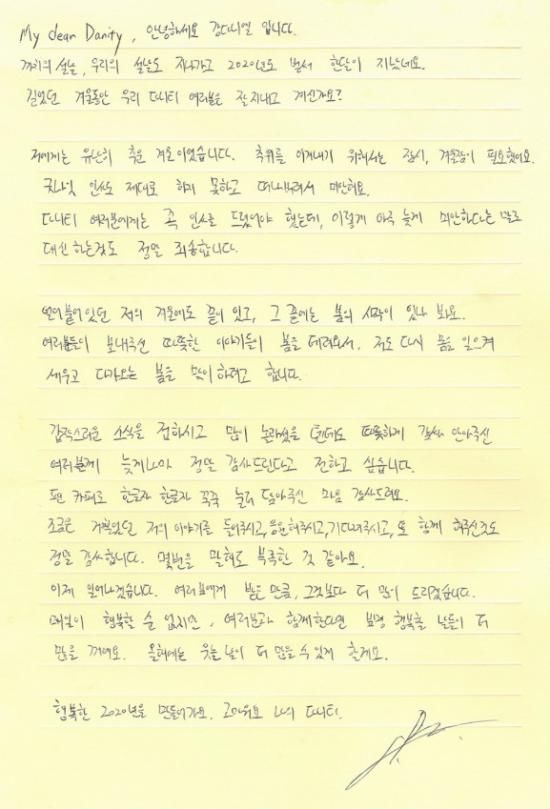 My dear Danity, 안녕하세요 강다니엘 입니다.
까치의 설날, 우리의 설날도 지나가고 2020년도 벌써 한달이 지났네요.
길었던 겨울동안 우리 다니티 여러분은 잘 지내고 계신가요?
저에게는 유난히 추운 겨울이었습니다. 추위를 이겨내기 위해서는 잠시, 겨울잠이 필요했어요.
그나마 인사도 제대로 하지 못하고 떠나버려서 미안해요.
다니티 여러분에게는 꼭 인사를 드렸어야 했는데, 이렇게 아주 늦게 미안하다는 말로
대신 하는것도 정말 죄송합니다.
얼어붙어 있던 저의 겨울에도 끝이 있고, 그 끝에는 봄의 시작이 있나 봐요.
여러분들이 보내주신 따뜻한 이야기들이 봄을 데려와서, 저도 다시 몸을 일으켜
세우고 다가오는 봄을 맞이하려고 합니다.
갑작스러운 소식을 접하시고 많이 놀라셨을 텐데도 따뜻하게 감싸 안아주신
여러분께 늦게나마 정말 감사드린다고 전하고 싶습니다.
팬 카페로 한글자 한글자 꾹꾹 눌러 담아주신 마음 감사드려요.
조금은 거칠었던 저의 이야기를 들어주시고, 응원해주시고, 기다려주시고, 또 함께 해주신것도
정말 감사합니다. 몇번을 말해도 부족한 것 같아요.
이제 일어나겠습니다. 여러분에게 받은 만큼, 그것보다 더 많이 드리겠습니다.
매일이 행복할 순 없지만, 여러분과 함께한다면 분명 행복할 날들이 더
많을 거에요. 올해에는 웃는 날이 더 많을 수 있게 할게요.
행복한 2020년을 만들어가요. 고마워요 나의 다니티.